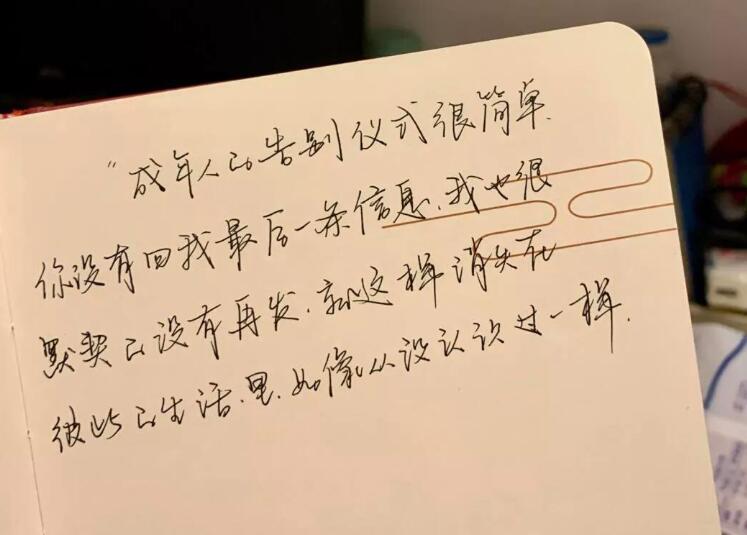 “成年人的告别仪式很简单.
你没有回我最后一条信息.我也很
默契的没有再发.就这样消失在
彼此的生活里.如像从没认识过一样.